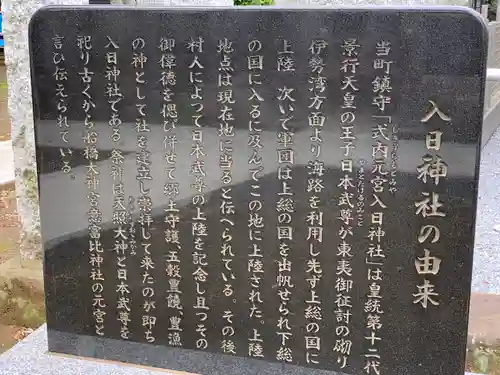 入日神社の由来
当町鎮守「式内元宮入日神社」は皇統第十二代
しきないもとみや
景行天皇の王子日本武尊が東夷御征討の砌り
やまとたけるのみこと
伊勢湾方面より海路を利用し先ず上総の国に
上陸 次いで軍団は上総の国を出帆せられ下総
の国に入るに及んでこの地に上陸された。上陸
地点は現在地に当ると伝へられている。その後
村人によって日本武尊の上陸を記念し且つその
御偉徳を偲び併せて郷土守護、五穀豊饒、豊漁
の神として社を建立し崇拝して来たのが即ち
入日神社である。祭神は天照大神と日本武尊を
祀り古くから船橋大神宮意富比神社の元宮と
言ひ伝えられている。